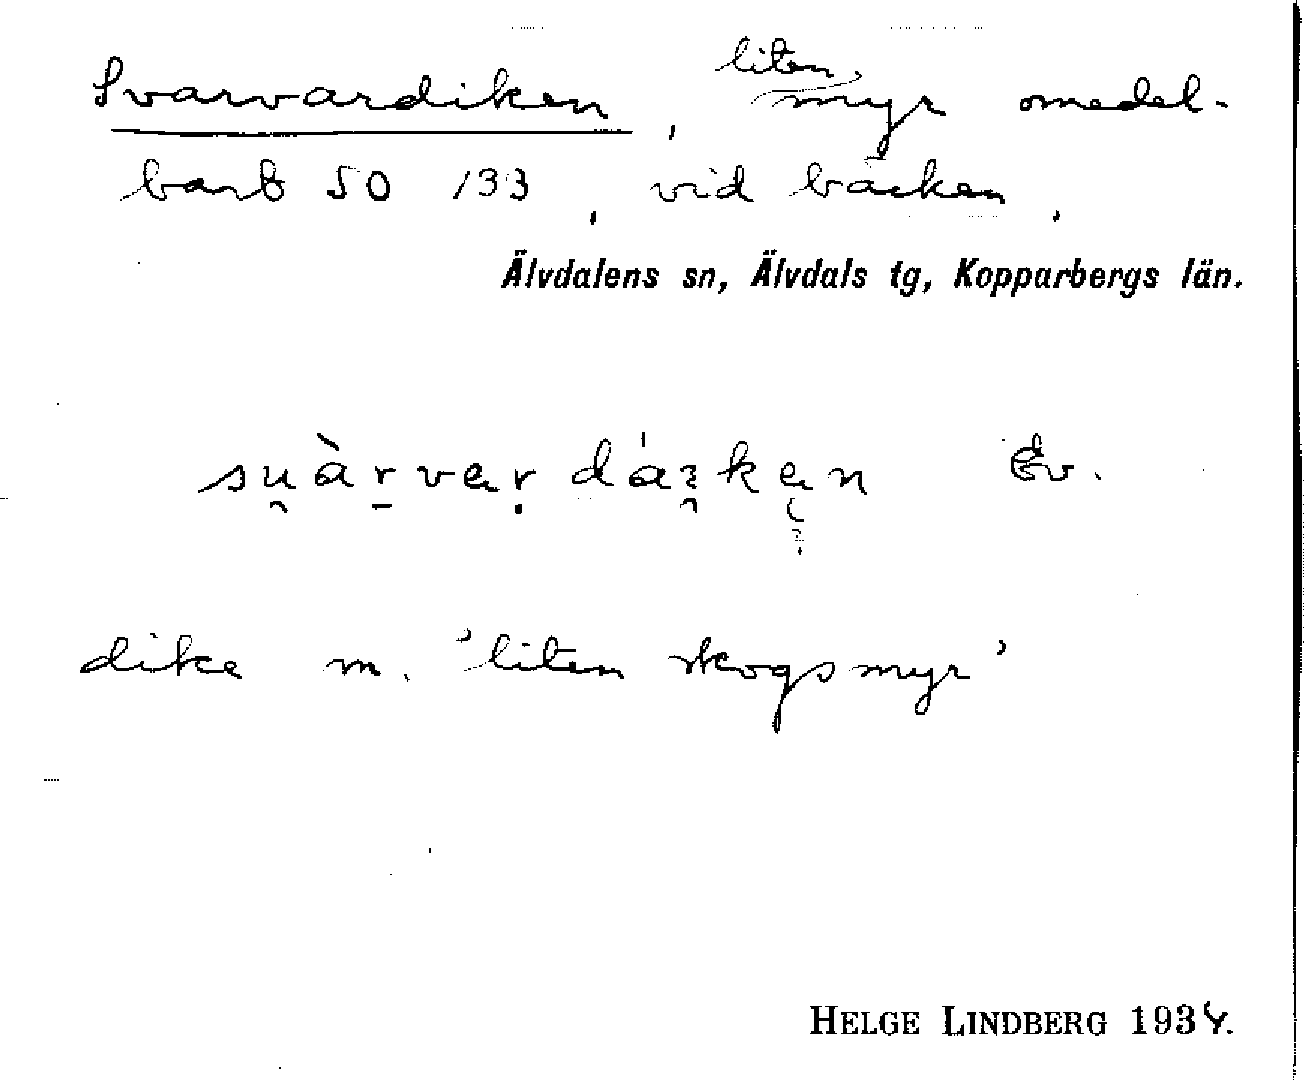 Svarvardiken, liten myr omedel-
bart SO 133, vid bäcken.
Älvdalens sn, Älvdals tg, Kopparbergs län.
Ev.
dike m. 'liten skogsmyr'
HELGE LINDBERG 1934.